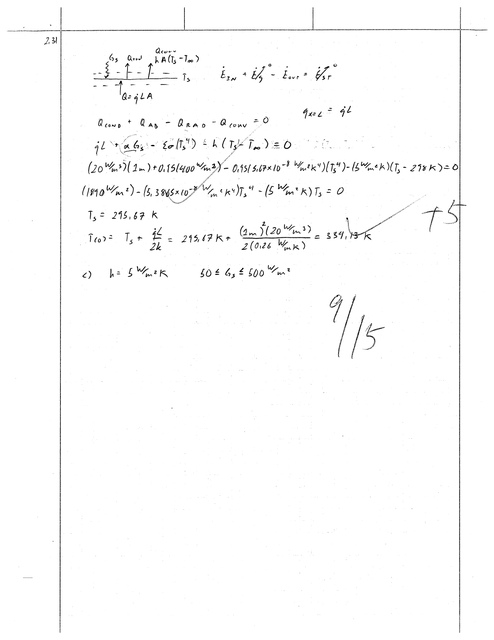 2.31
Gs Qrad Qconv
hA(Ts-T∞)
Ts
Q=q̇LA
Ėin + Ėg⁰ - Ėout = Ėst⁰
Qcond + Qab - Qrad - Qconv = 0
q̇L
q̇L + αGs - εσ(Ts⁴) - h(Ts-T∞) = 0
(20 W/m³)(1m) + 0.95(400 W/m²) - 0.95(5.67×10⁻⁸ W/m²K⁴)(Ts⁴) - (5 W/m²K)(Ts - 298K) = 0
(1890 W/m²) - (5.3865×10⁻⁸ W/m²K⁴)Ts⁴ - (5 W/m²K)Ts = 0
Ts = 295.67 K
T(0) = Ts + q̇L/2k = 295.67 K + (1m)²(20 W/m³)/2(0.26 W/mK) = 334.13 K
+5
c) h = 5 W/m²K 50 ≤ Gs ≤ 500 W/m²
9/15